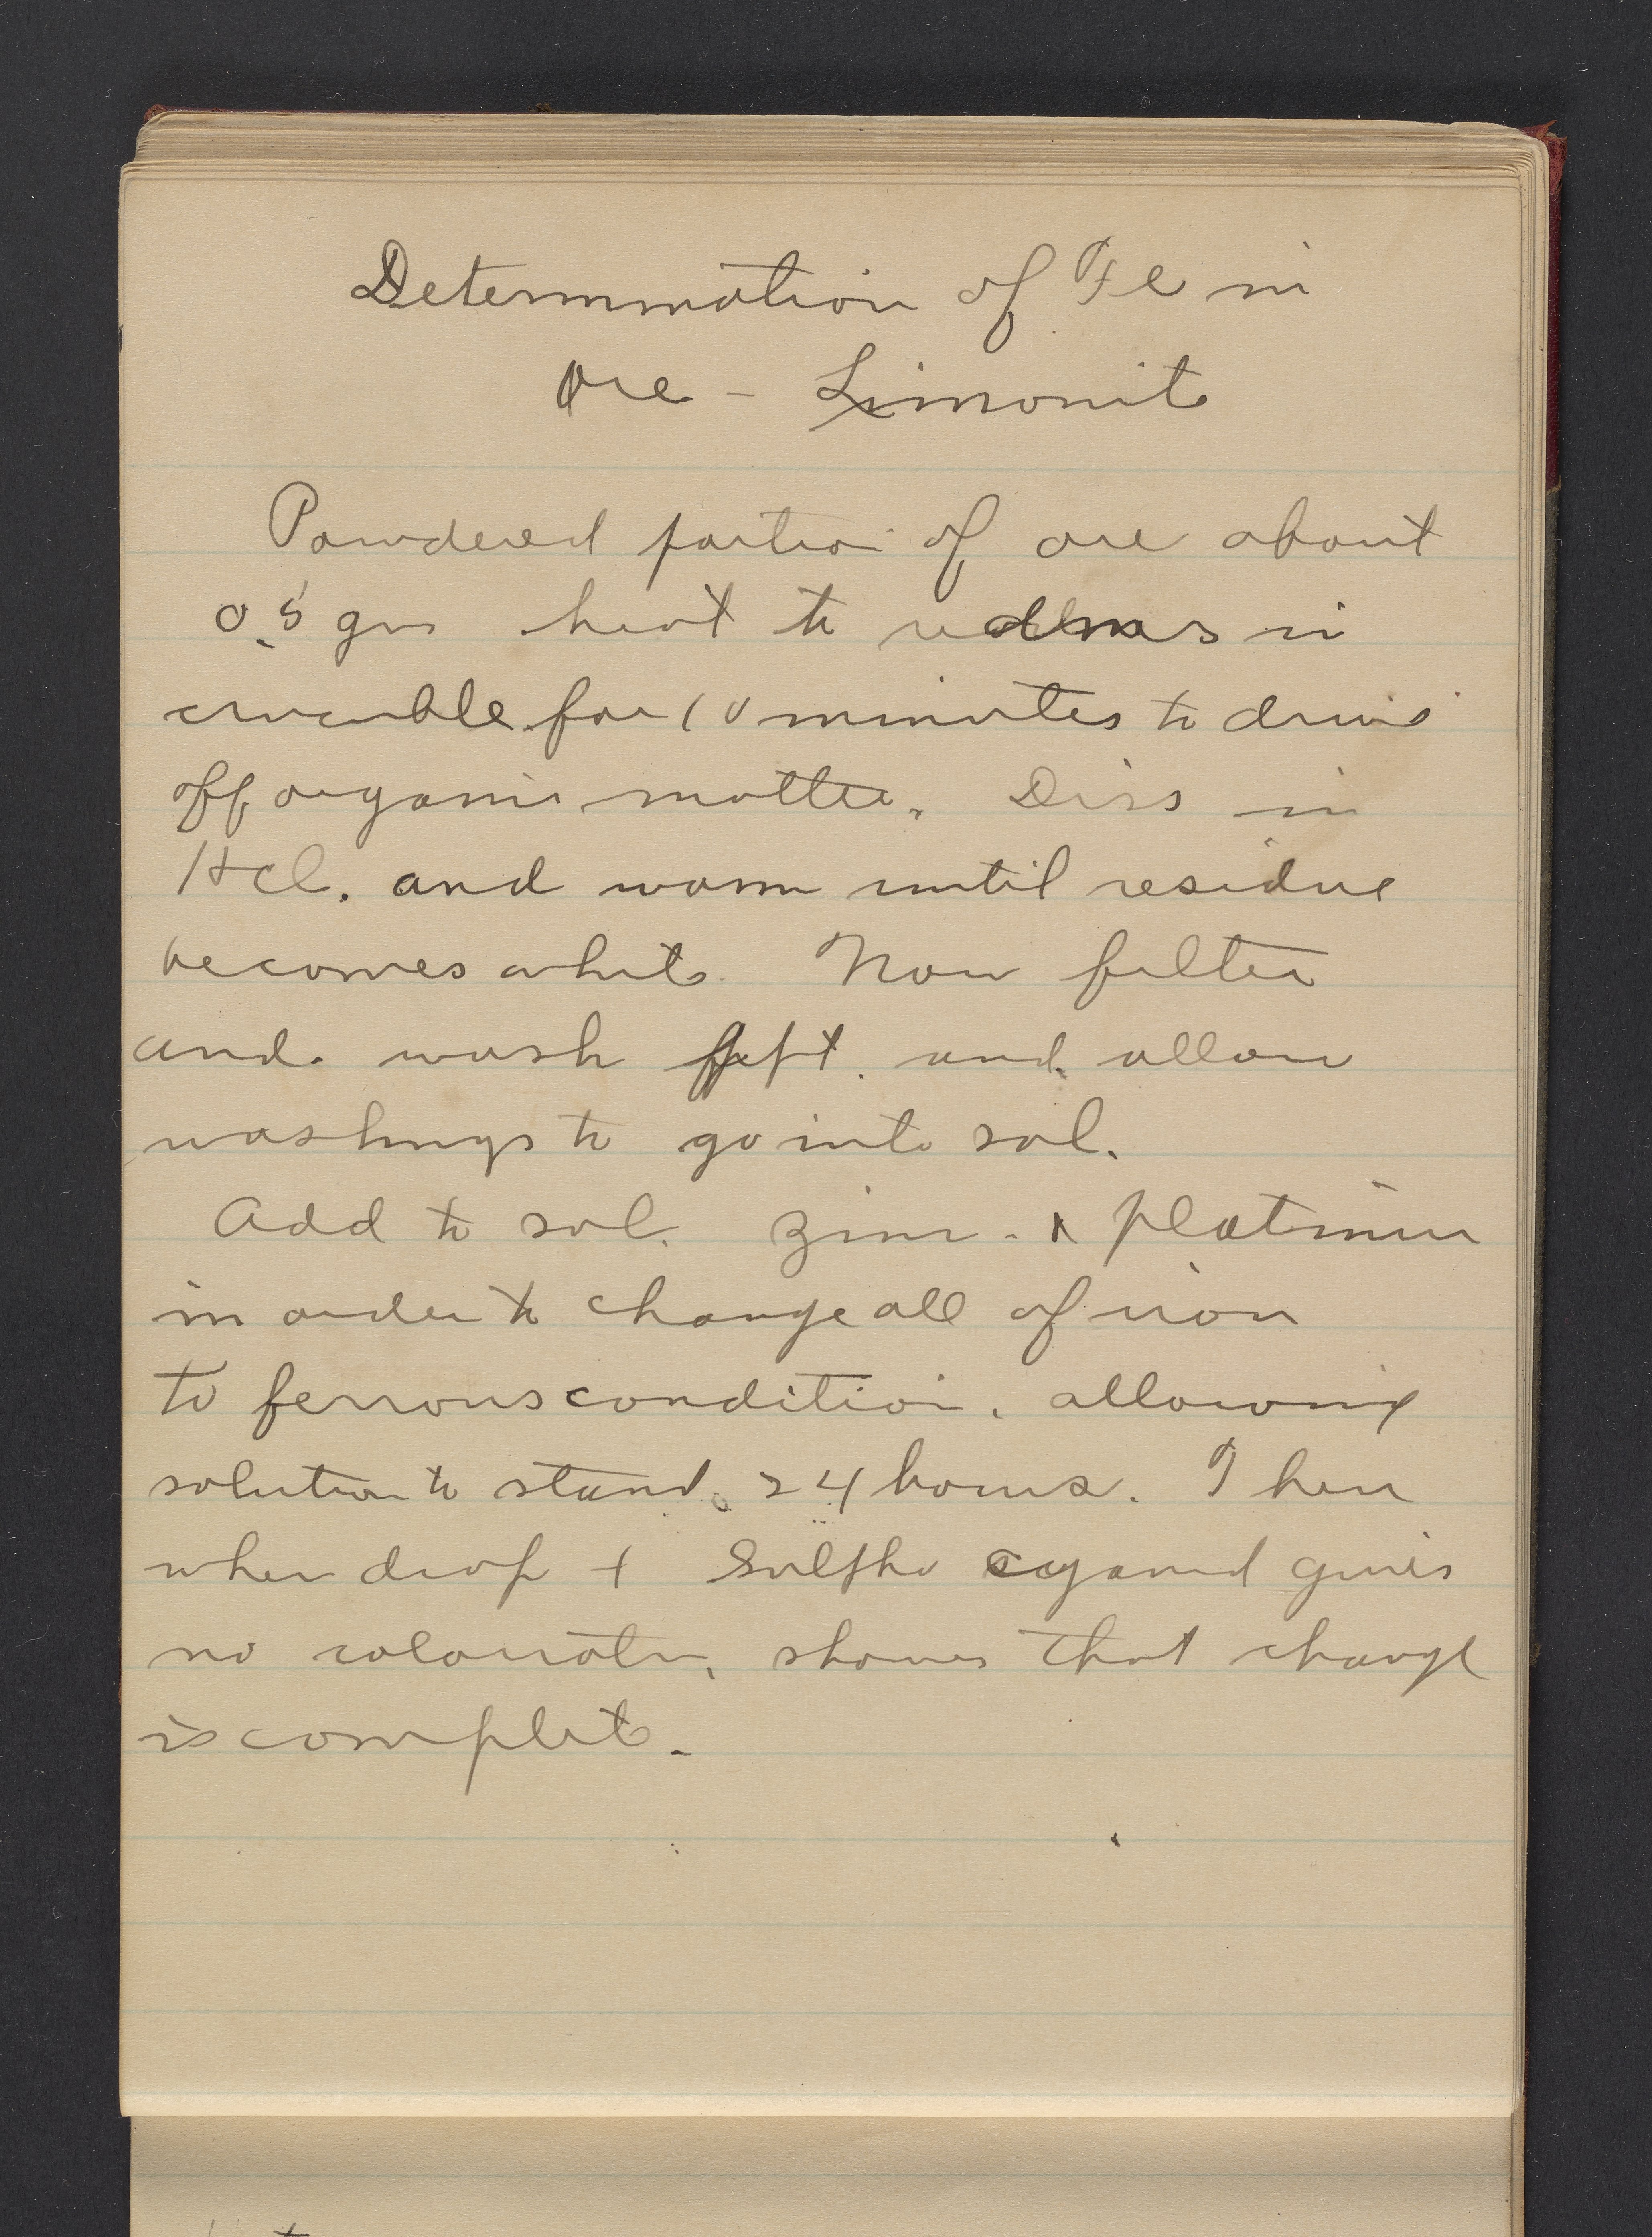 Determination of Fe in
Ore - Limonite
Powdered portion of ore about
0.5 gm heat to redness in
crucible for 10 minutes to drive
off organic matter. Diss in
HCl. and warm until residue
becomes white Now filter
and wash ppt. and allow
washings to go into sol.
Add to sol. zinc - & platinum
in order to change all of iron
to ferrous condition, allowing
solution to stand 24 hours. Then
when drop + Sulpho cyanid gives
no coloratn, shows that change
is complete.